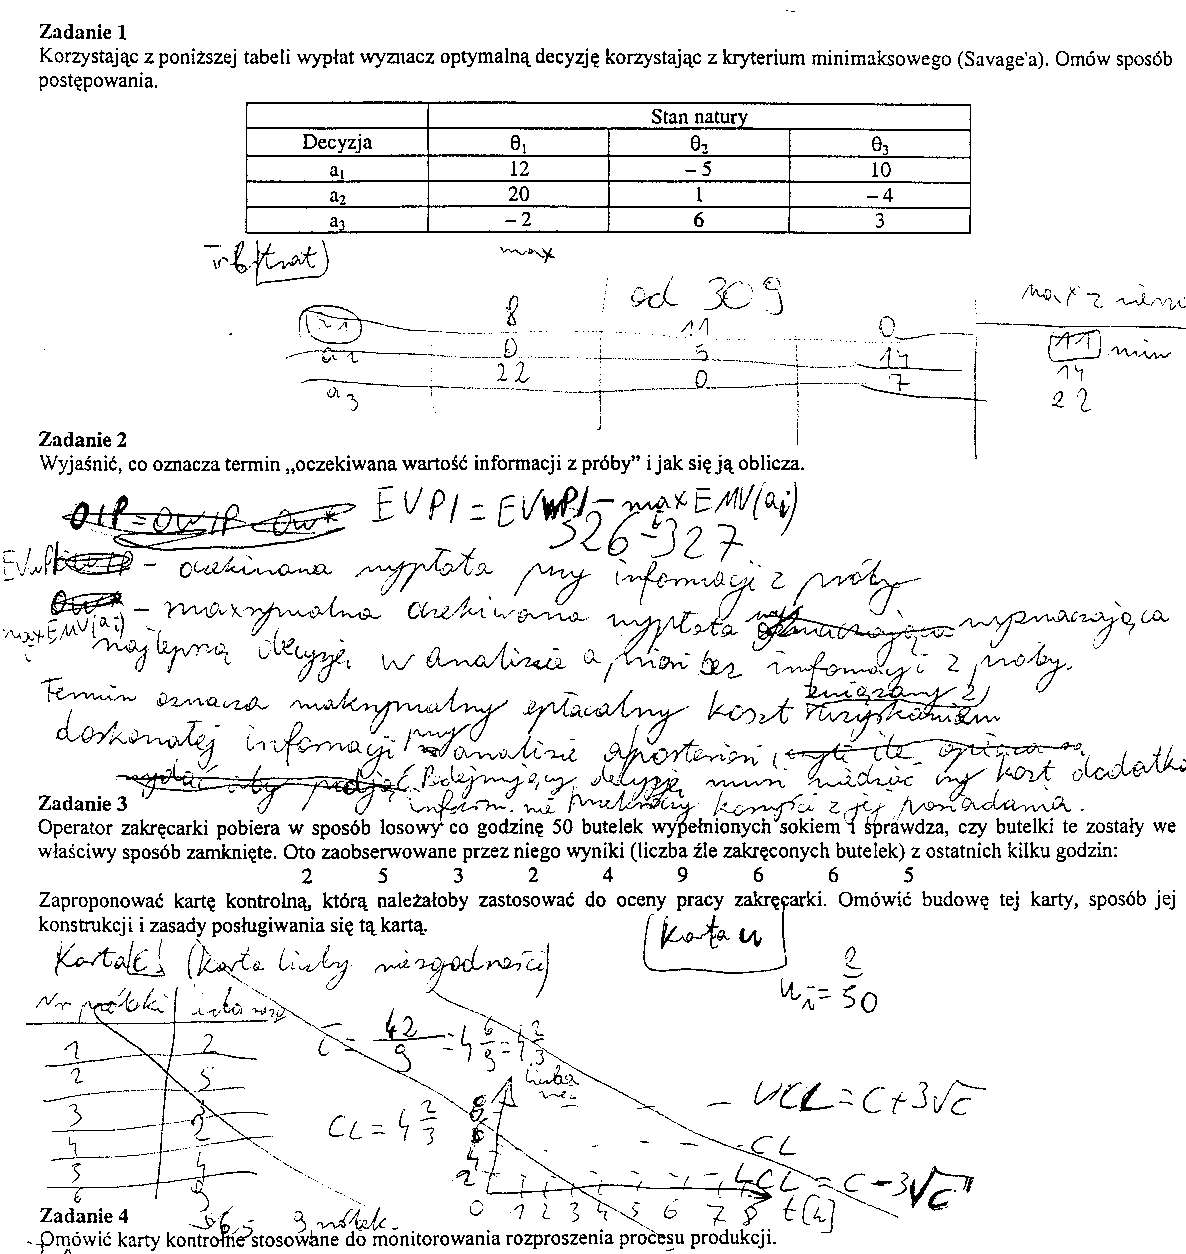 Zadanie 1
Korzystając z poniższej tabeli wypłat wyznacz optymalną decyzję korzystając z kryterium minimaksowego (Savage'a). Omów sposób
postępowania.
Stan natury
Decyzja θ₁ θ₂ θ₃
a₁ 12 – 5 10
a₂ 20 1 – 4
a₃ – 2 6 3
max
od 309
max z
a1 8 11 0 11 min
a2 0 5 14 14
a3 22 0 7 22
Zadanie 2
Wyjaśnić, co oznacza termin „oczekiwana wartość informacji z próby" i jak się ją oblicza.
EVPI = EVwPI – max EMV(ai)
326-327
– oczekiwana wypłata przy informacji z próby
max EMV(ai) – maxymalna oczekiwana wypłata wyznaczająca
najlepszą decyzję w analizie a priori bez informacji z próby.
Termin oznacza maksymalny opłacalny koszt związany z
doskonałej informacji przy analizie aposteriori
Podejmujący decyzję musi wiedzieć czy koszt
inform. nie korzyści z jej posiadania.
Zadanie 3
Operator zakręcarki pobiera w sposób losowy co godzinę 50 butelek wypełnionych sokiem i sprawdza, czy butelki te zostały we
właściwy sposób zamknięte. Oto zaobserwowane przez niego wyniki (liczba źle zakręconych butelek) z ostatnich kilku godzin:
2 5 3 2 4 9 6 6 5
Zaproponować kartę kontrolną, którą należałoby zastosować do oceny pracy zakręcarki. Omówić budowę tej karty, sposób jej
konstrukcji i zasady posługiwania się tą kartą.
Karta u
Karta C (karta liczby niezgodności)
ui = 2/50
Nr próbki
1 2
2 5
3 3
4 2
5 4
6 9
c = 42/9 = 4 6/9 = 4 2/3
CL = 4 2/3
liczba
UCL = C + 3√c
CL
LCL = C – 3√c
0 1 2 3 4 5 6 7 8 t[h]
Zadanie 4
Omówić karty kontrolne stosowane do monitorowania rozproszenia procesu produkcji.